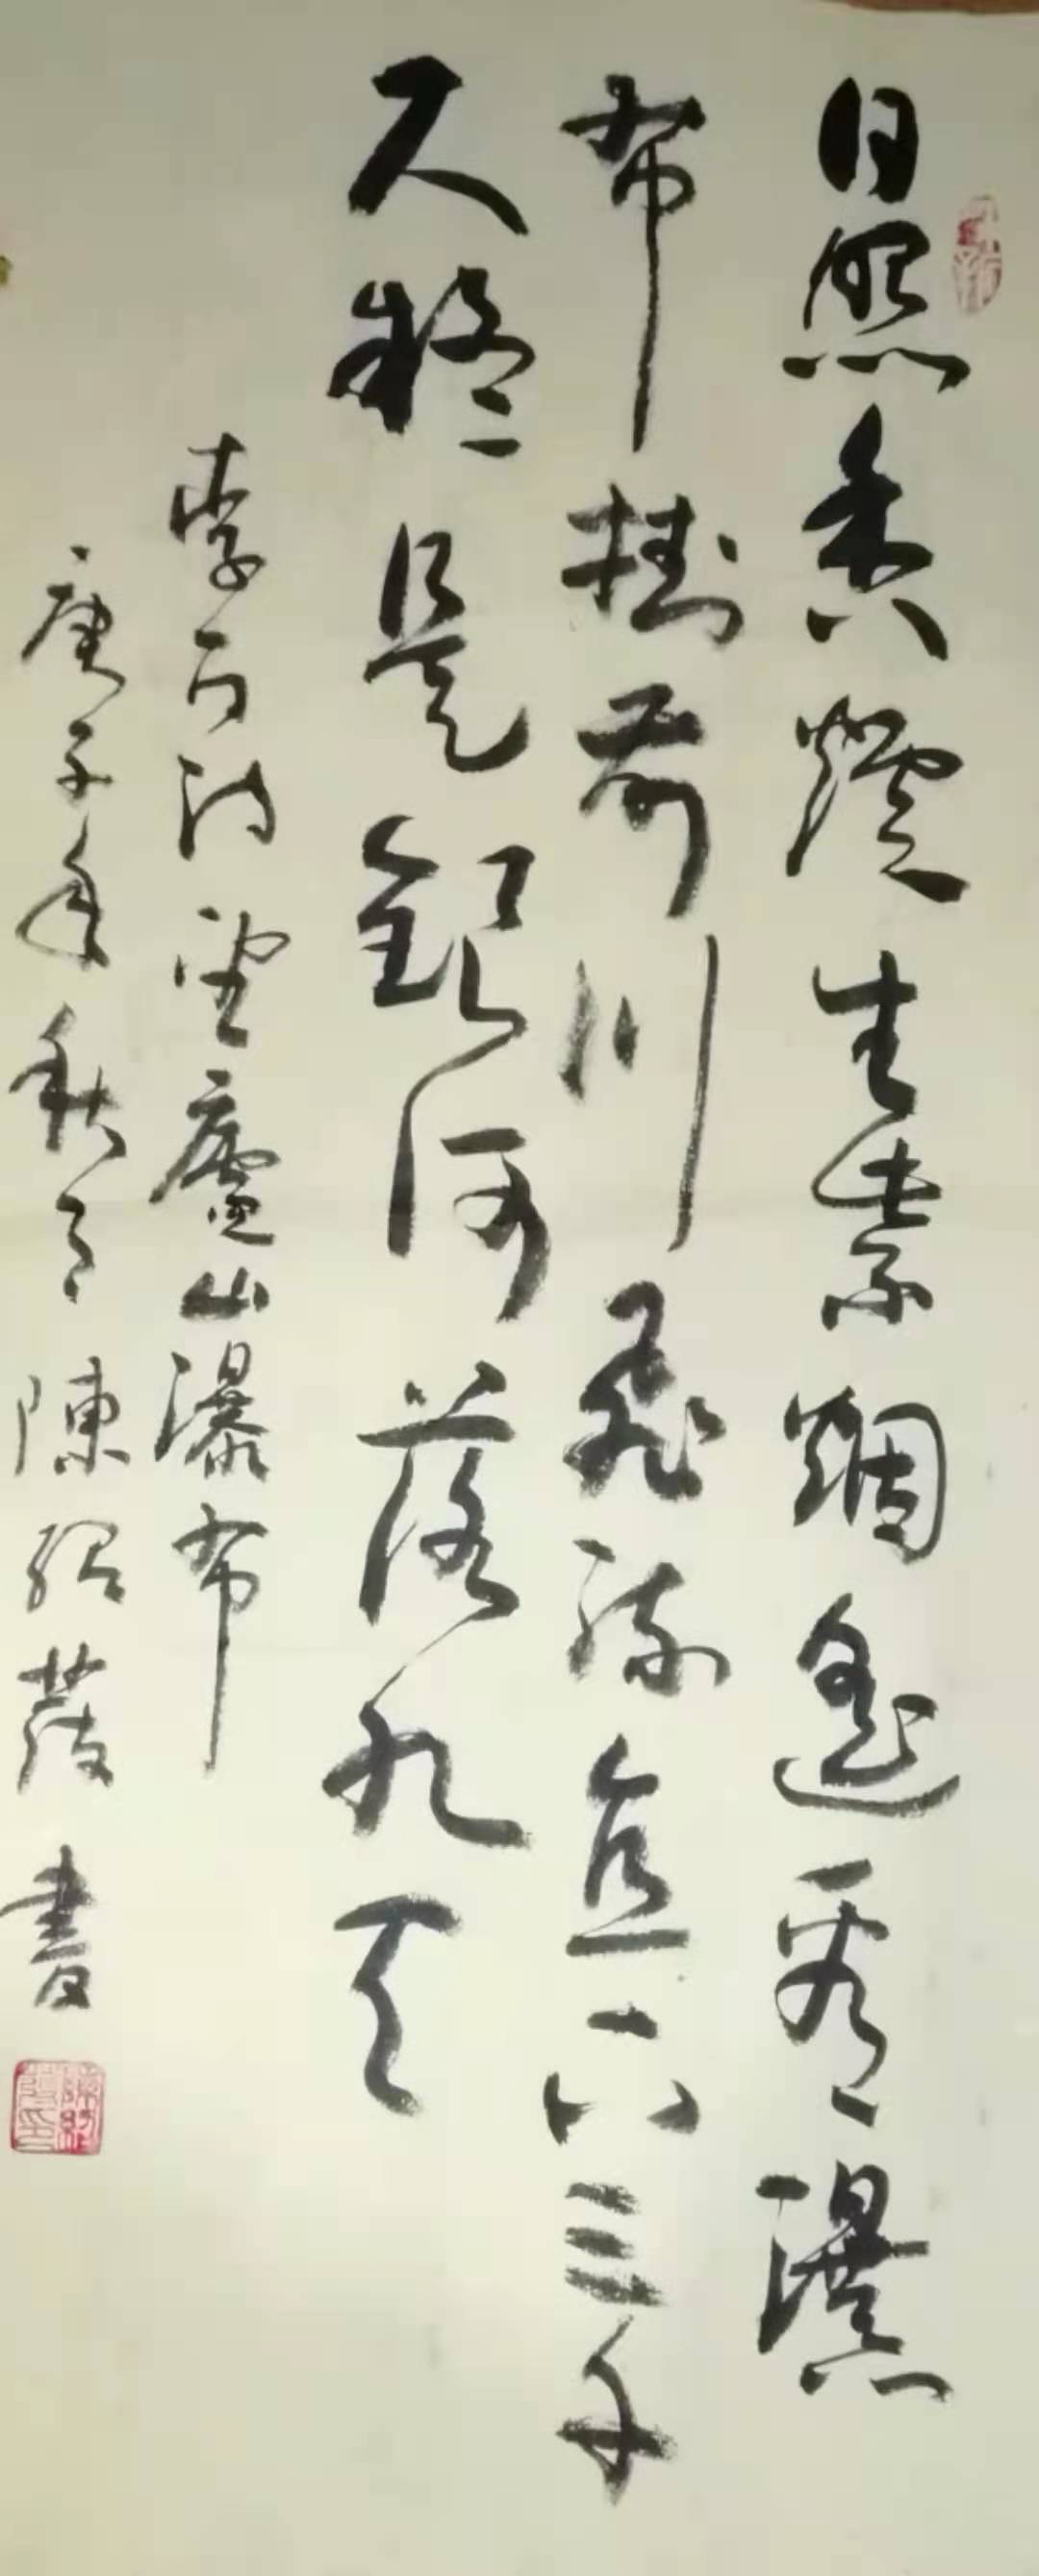 日照香爐生紫烟遙看瀑
布掛前川飛流直下三千
尺疑是銀河落九天
李白詩望廬山瀑布
庚子年秋月陳紹發書